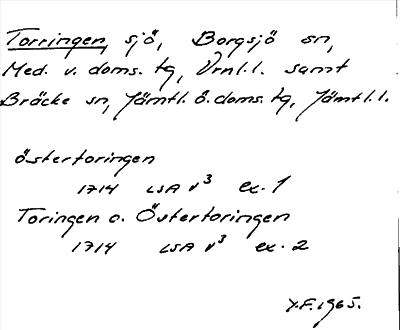 Torringen, sjö, Borgsjö sn,
Med. v. doms. tg, Vrnl.l. samt
Bräcke sn, Jämtl. ö. doms. tg, Jämtl.l.
östertoringen
1714 LSA v³ ex. 1
Toringen o. Östertoringen
1714 LSA v³ ex. 2
Y.F. 1965.